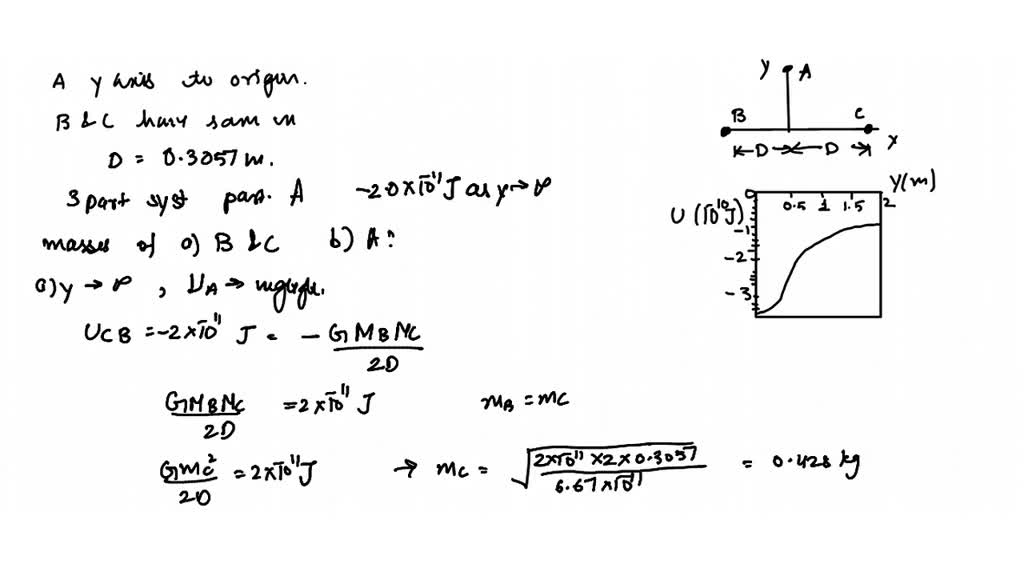 A y axis to origin.
B & C have sam m
D = 0.3057 m.
3 part syst part. A -20 × 10¯¹¹ J as y → ∞
masses of a) B & C b) A?
a) y → ∞, U_A → neglgb.
U_CB = -2 × 10¯¹¹ J = - G M_B M_C / 2D
G M_B M_C / 2D = 2 × 10¯¹¹ J m_B = m_C
G m_C² / 2D = 2 × 10¯¹¹ J → m_C = √(2 × 10¯¹¹ × 2 × 0.3057 / 6.67 × 10¯¹¹) = 0.428 kg
y A
B C
D D x
0 0.5 1 1.5 2 Y(m)
U (10¯¹⁰ J)
-1
-2
-3